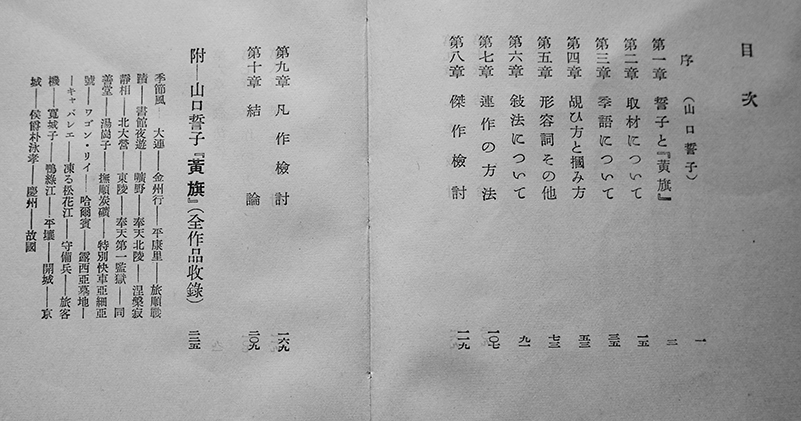 目次
序（山口誓子） 一
第一章 誓子と『黃旗』 二
第二章 取材について 一五
第三章 季語について 三五
第四章 覘ひ方と摑み方 五三
第五章 形容詞その他 七三
第六章 敍法について 九一
第七章 連作の方法 一〇七
第八章 傑作檢討 一一九
第九章 凡作檢討 一六九
第十章 結論 二〇九
附―山口誓子『黃旗』（全作品收錄） 二二五
季節風 大連――金州行――平康里――旅順戰
蹟――書館夜遊――曠野――奉天北陵――涅槃寂
靜相――北大營――東陵――奉天第一監獄――同
善堂――湯崗子――撫順炭礦――特別快車亞細亞
號――ワゴン・リイ――哈爾賓――露西亞墓地―
―キャバレエ――凍る松花江――守備兵――旅客
機――寬城子――鴨綠江――平壤――開城――京
城――侯爵朴泳孝――慶州――故國